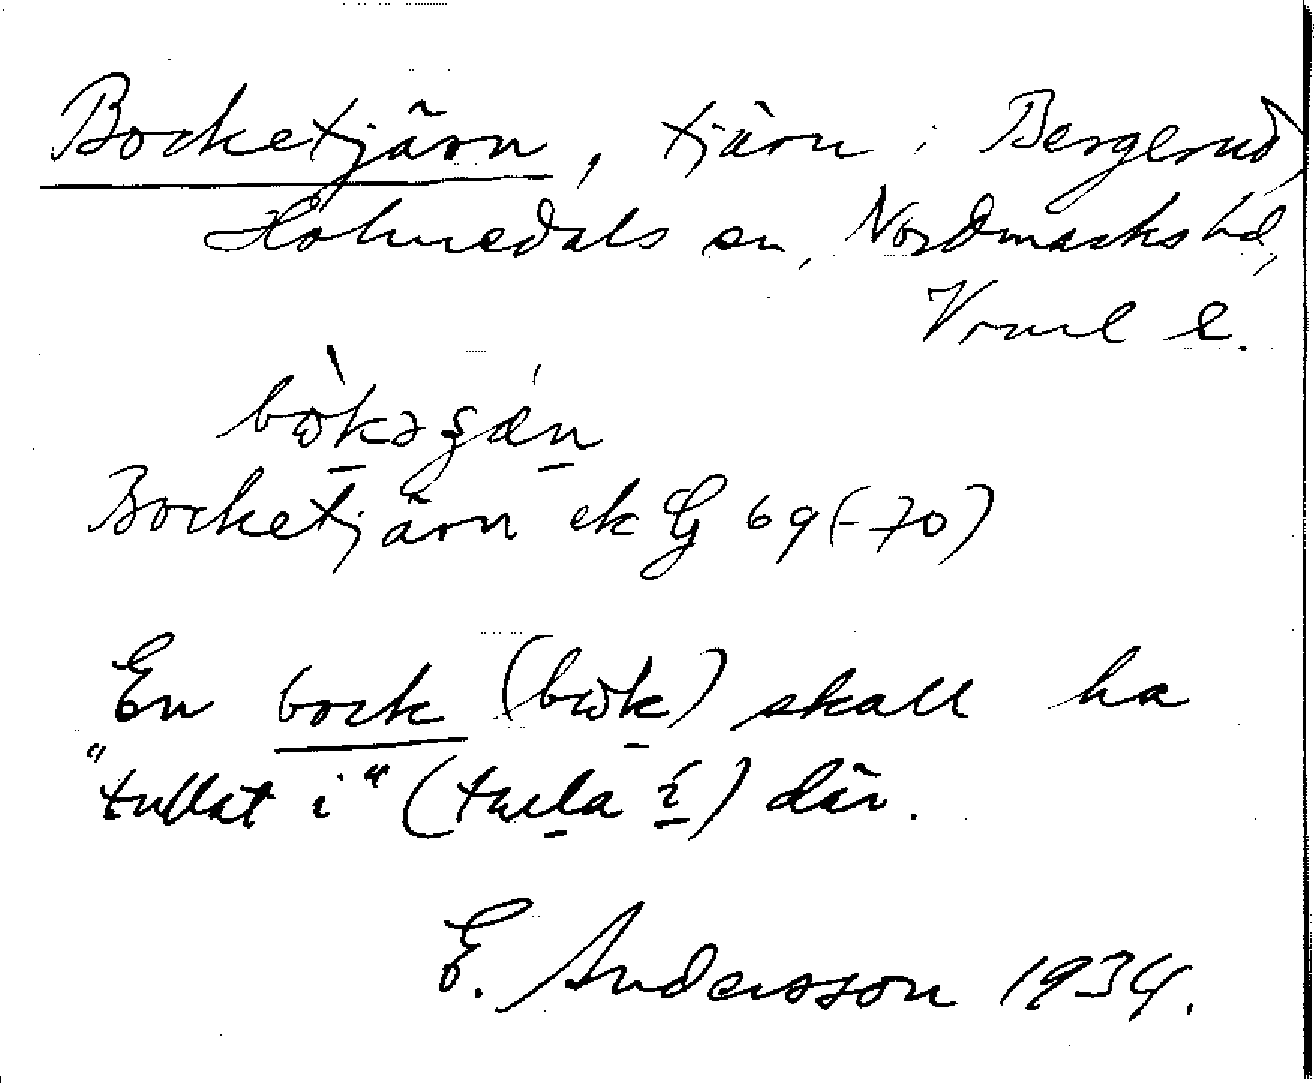 Bocketjärn, tjärn i Bergerud,
Holmedals sn, Nordmarks hd,
Värml l.
Bocketjärn ek G 69 (-70)
En bock (bωk) skall ha
"tullat i" (tula i) där.
E. Andersson 1934.